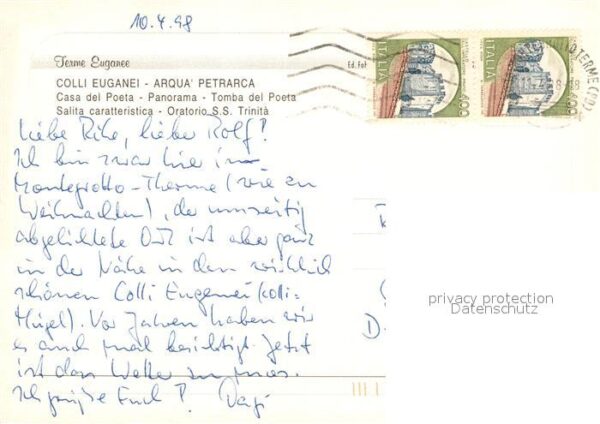 10.4.98
Terme Euganee
Ed. Fot
COLLI EUGANEI - ARQUA' PETRARCA
Casa del Poeta - Panorama - Tomba del Poeta
Salita caratteristica - Oratorio S.S. Trinità
ITALIA
ITALIA
TERME (PD)
Liebe Rike, lieber Rolf!
Ich bin zwar hier in
Montegrotto-Therme (wie an
Weihnachten), der umseitig
abgelichtete Ort ist aber ganz
in der Nähe in den wirklich
schönen Colli Euganei (colli=
Hügel). Vor Jahren haben wir
es auch mal besichtigt. Jetzt
ist das Wetter zu mies.
Ich grüße Euch! Dagi
privacy protection
Datenschutz
D